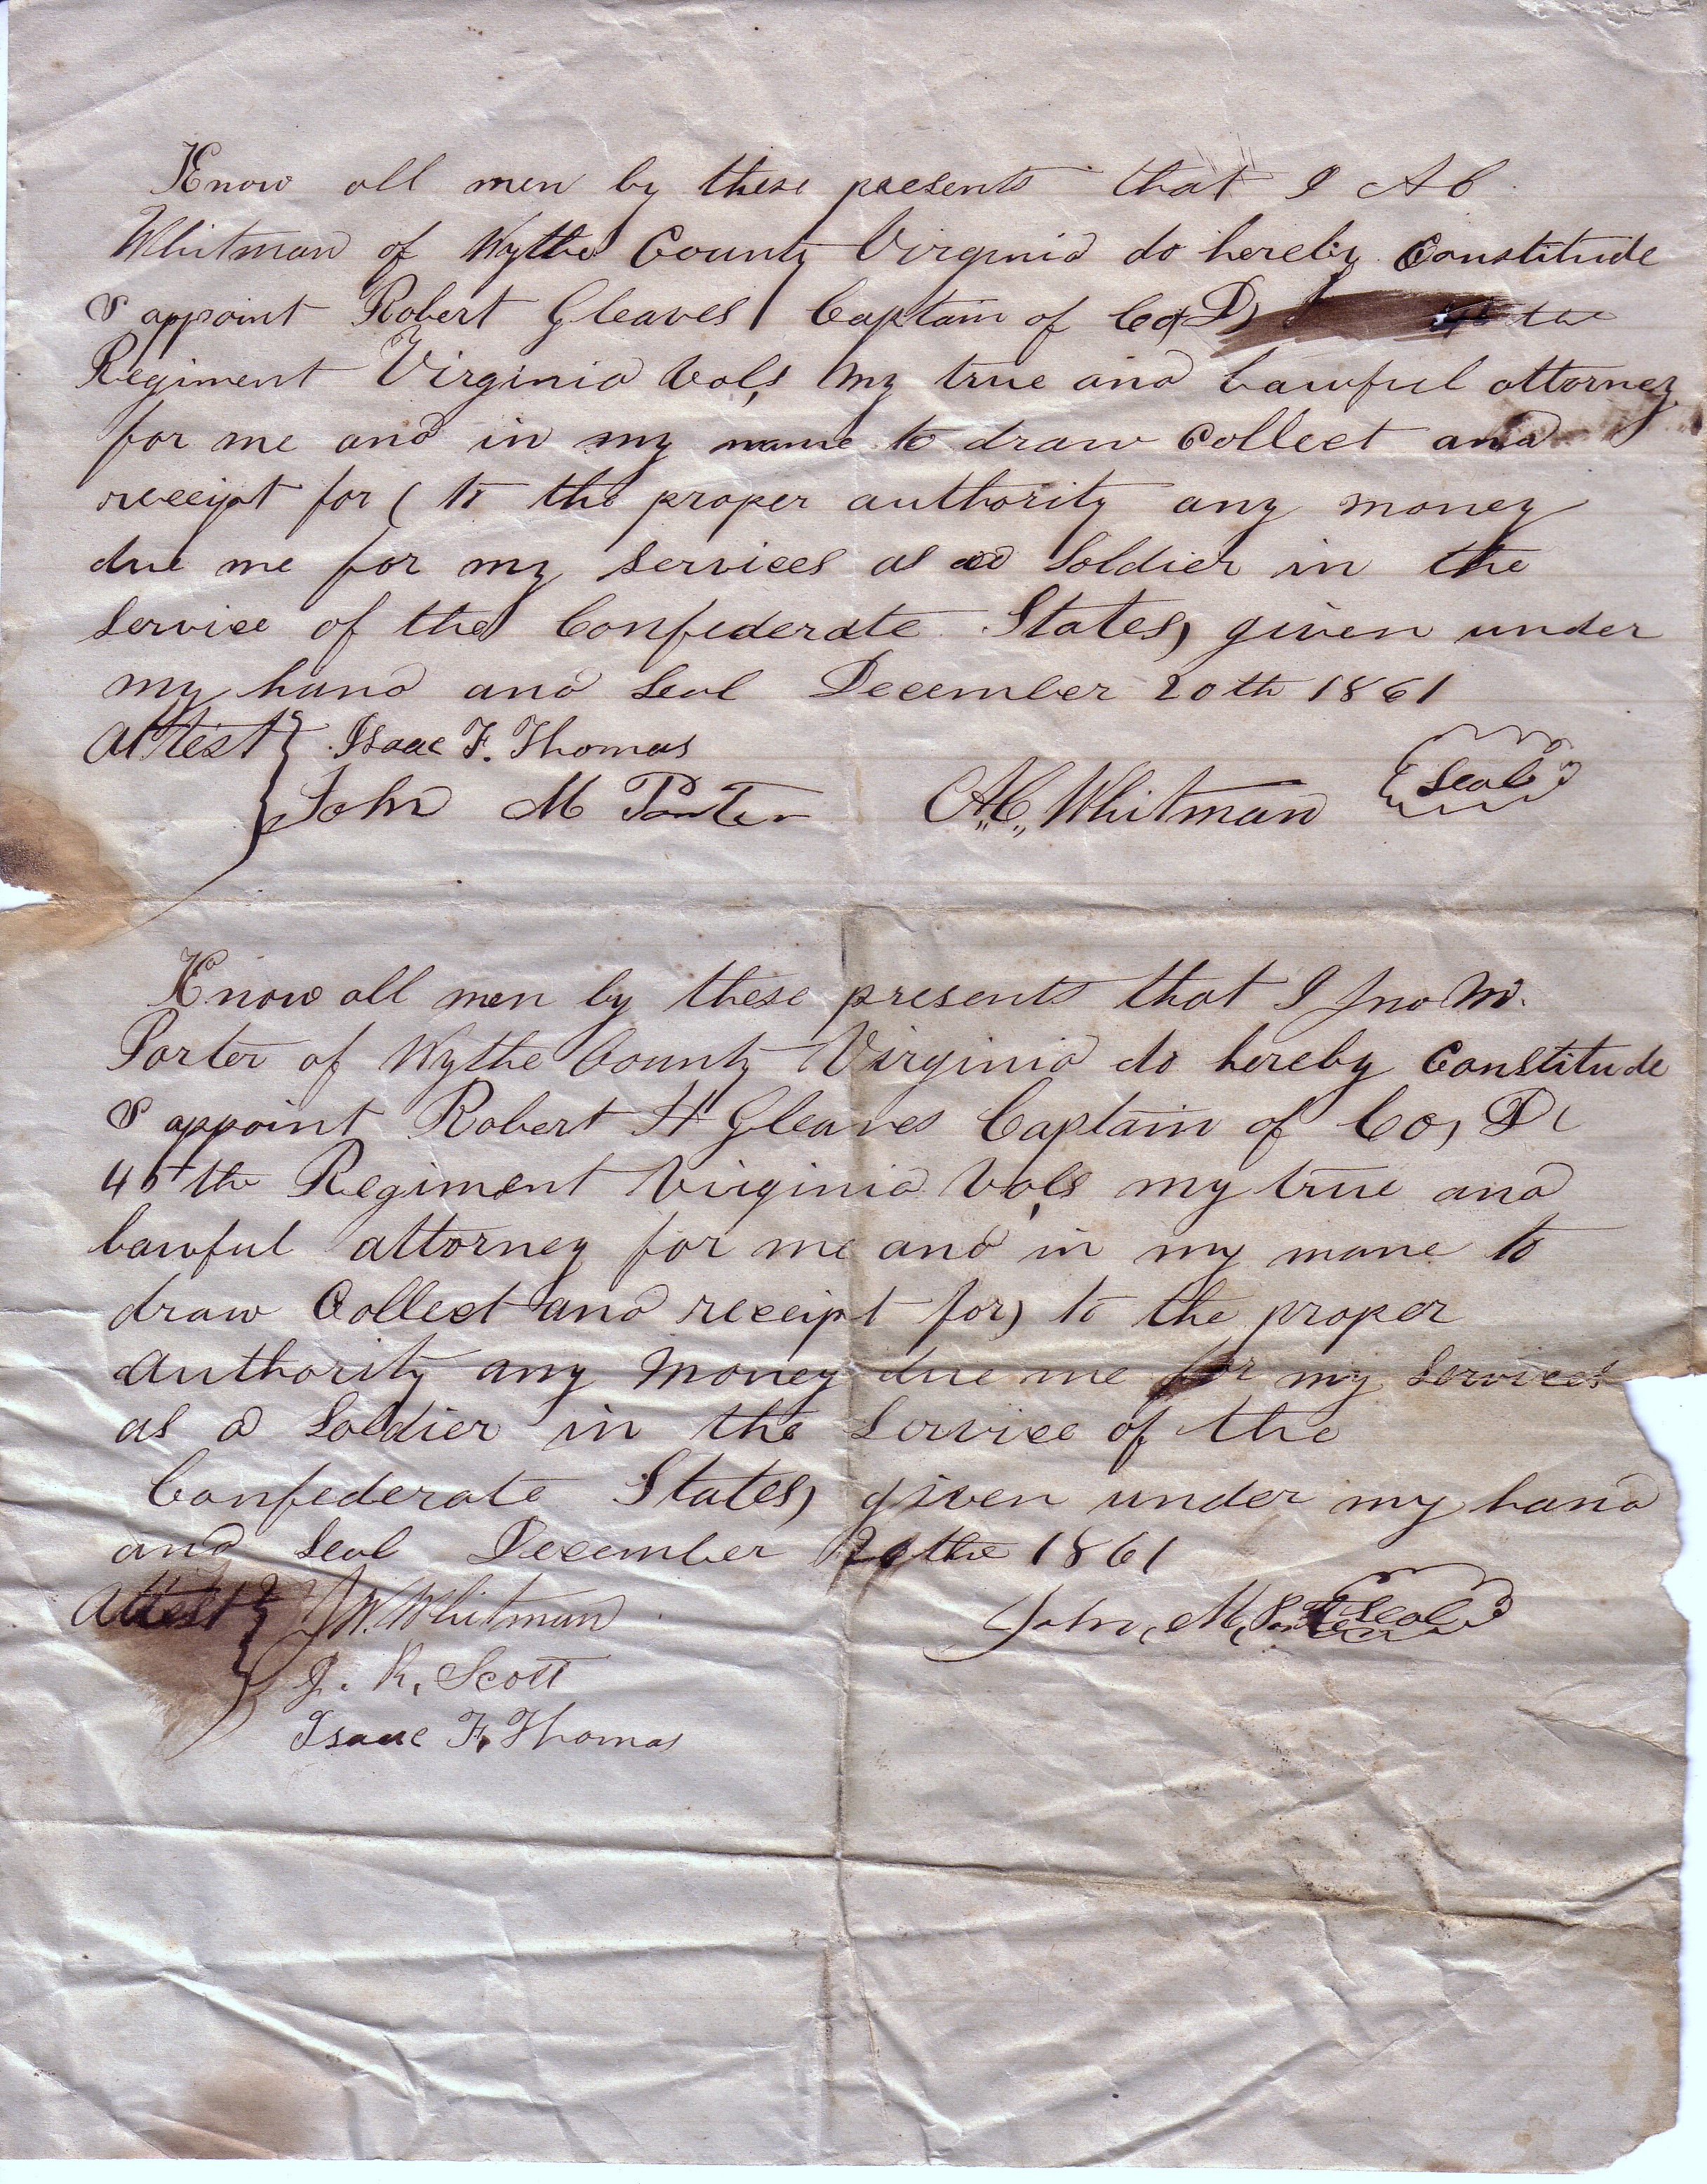 Know all men by these presents that I A C
Whitman of Wythe County Virginia do hereby Constitude
& appoint Robert Gleaves Captain of Co, D,
Regiment Virginia Vols, my true and lawful attorney
for me and in my name to draw Collect and
receipt for ( to the proper authority any money
due me for my services as a Soldier in the
service of the Confederate States, given under
my hand and seal December 20th 1861
Attest } Isaac F. Thomas
John M Porter A,,C,, Whitman Seal
Know all men by these presents that I Jno M.
Porter of Wythe County Virginia do hereby Constitude
& appoint Robert H Gleaves Captain of Co, D
45th Regiment Virginia Vols my true and
lawful attorney for me and in my mane to
draw Collect and receipt for) to the proper
Authority any Money due me for my services
as a Soldier in the Service of the
Confederate States, given under my hand
and seal December the 1861
Attest } J W. Whitman John, M, Porter Seal
J. R, Scott
Isaac F, Thomas